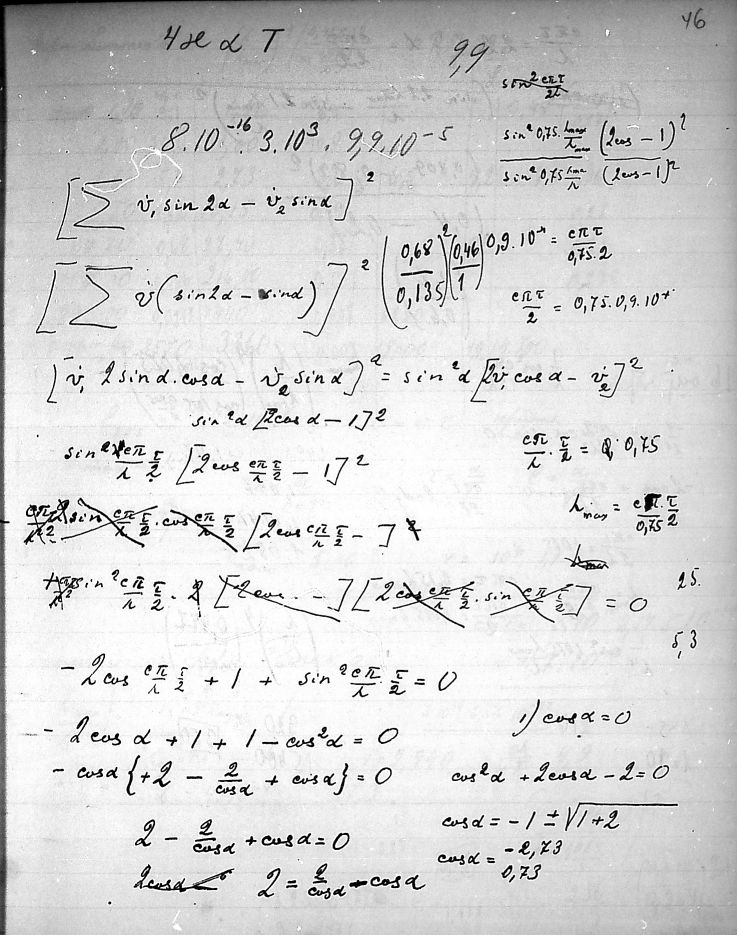 46
4 ϰ α T
9,9
sin² cπτ/2λ
8.10⁻¹⁶ . 3.10³ . 9,9.10⁻⁵
sin² 0,75 . λmax/λmax (2cos – 1)² / sin² 0,75 λmax/λ (2cos – 1)²
[∑ v̇₁ sin 2α – v̇₂ sinα]²
[∑ v̇ (sin2α – sinα)]² (0,68/0,135)² (0,46/1) 0,9.10⁻⁴ = cπτ/0,75.2
cπτ/2 = 0,75.0,9.10⁻⁴
[v̇₁ 2sinα.cosα – v̇₂ sinα]² = sin²α [2v̇₁ cosα – v̇₂]²
sin²α [2cosα – 1]²
sin² cπ/λ τ/2 [2cos cπ/λ τ/2 – 1]²
cπ/λ . τ/2 = 0,75
cπ/λ² 2 sin cπ/λ τ/2 . cos cπ/λ τ/2 [2cos cπ/λ τ/2 – ]
λmax = cπ/0,75 . τ/2
λmax
+ sin² cπ/λ τ/2 . 2 [2cos . –] [2cos cπ/λ τ/2 . sin cπ/λ τ/2] = 0
25.
5,3
– 2cos cπ/λ τ/2 + 1 + sin² cπ/λ . τ/2 = 0
1) cosα = 0
– 2cos α + 1 + 1 – cos²α = 0
– cosα {+2 – 2/cosα + cosα} = 0
cos²α + 2cosα – 2 = 0
2 – 2/cosα + cosα = 0
cosα = – 1 ± √1+2
cosα = –2,73 0,73
2cosα 2 = 2/cosα – cosα